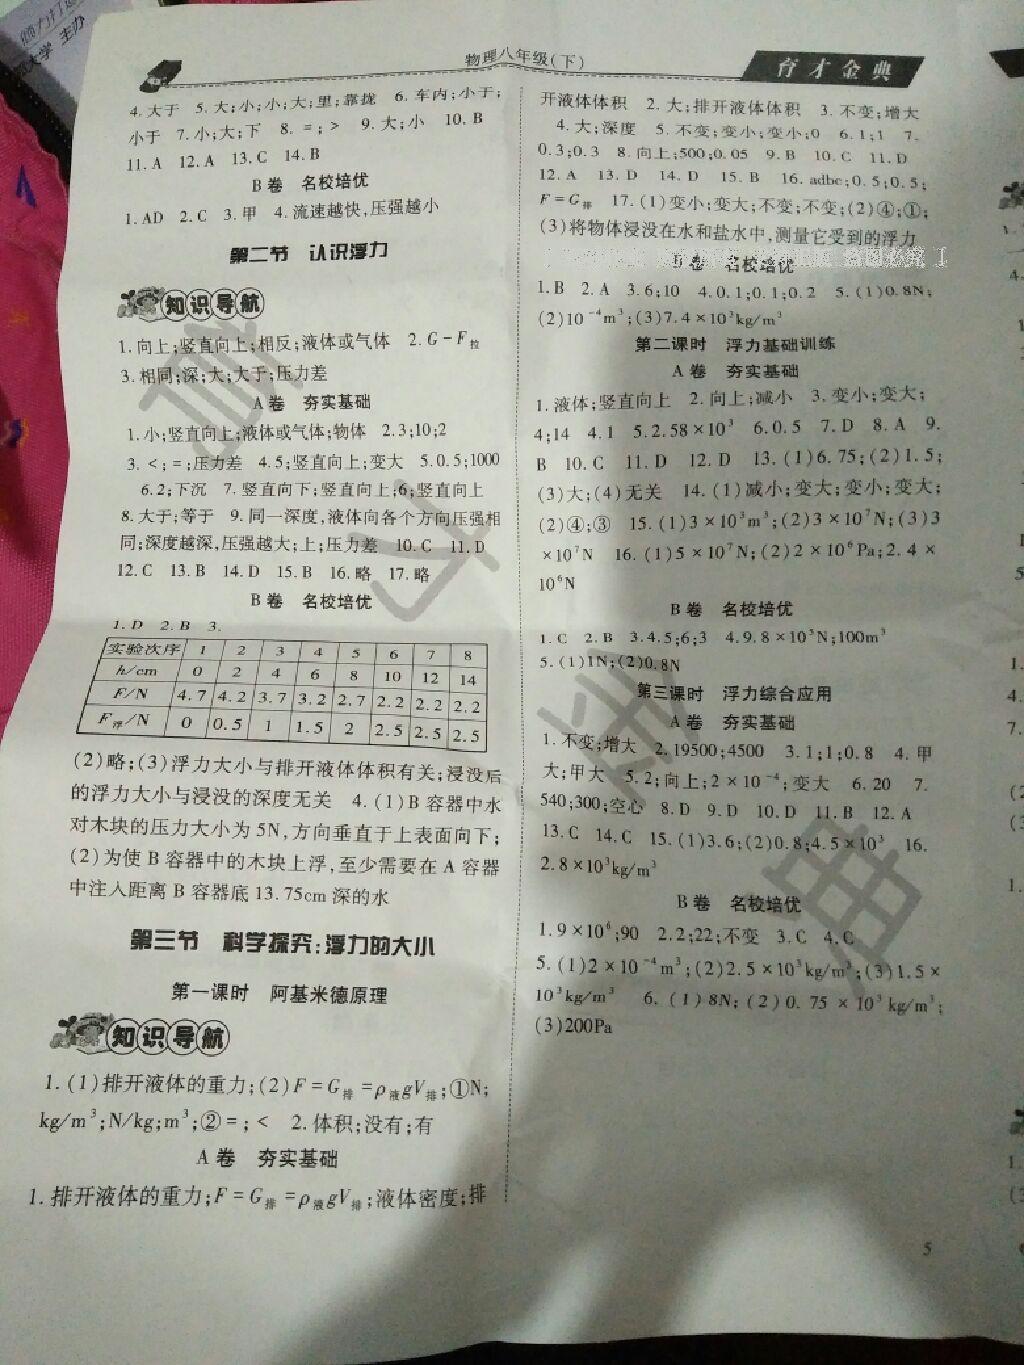 倾力打造
大学 主办
物理八年级(下)
育才金典
4.大于 5.大;小;小;大;里;靠拢 6.车内;小于;
小于 7.小;大;下 8.=;> 9.大;小 10.B
11.A 12.A 13.C 14.B
B卷 名校培优
1.AD 2.C 3.甲 4.流速越快,压强越小
第二节 认识浮力
知识导航
1.向上;竖直向上;相反;液体或气体 2.G-F拉
3.相同;深;大;大于;压力差
A卷 夯实基础
1.小;竖直向上;液体或气体;物体 2.3;10;2
3.<;=;压力差 4.5;竖直向上;变大 5.0.5;1000
6.2;下沉 7.竖直向下;竖直向上;6;竖直向上
8.大于;等于 9.同一深度,液体向各个方向压强相
同;深度越深,压强越大;上;压力差 10.C 11.D
12.C 13.B 14.D 15.B 16.略 17.略
B卷 名校培优
1.D 2.B 3.
实验次序 1 2 3 4 5 6 7 8
h/cm 0 2 4 6 8 10 12 14
F/N 4.7 4.2 3.7 3.2 2.7 2.2 2.2 2.2
F浮/N 0 0.5 1 1.5 2 2.5 2.5 2.5
(2)略;(3)浮力大小与排开液体体积有关;浸没后
的浮力大小与浸没的深度无关 4.(1)B容器中水
对木块的压力大小为5N,方向垂直于上表面向下;
(2)为使B容器中的木块上浮,至少需要在A容器
中注入距离B容器底13.75cm深的水
第三节 科学探究:浮力的大小
第一课时 阿基米德原理
知识导航
1.(1)排开液体的重力;(2)F=G排=ρ液gV排;①N;
kg/m³;N/kg;m³;②=;< 2.体积;没有;有
A卷 夯实基础
1.排开液体的重力;F=G排=ρ液gV排;液体密度;排
开液体体积 2.大;排开液体体积 3.不变;增大
4.大;深度 5.不变;变小;变小;0 6.1;1 7.
0.3;0.3 8.向上;500;0.05 9.B 10.C 11.D
12.A 13.D 14.D 15.B 16.adbc;0.5;0.5;
F=G排 17.(1)变小;变大;不变;不变;(2)④;①;
(3)将物体浸没在水和盐水中,测量它受到的浮力
B卷 名校培优
1.B 2.A 3.6;10 4.0.1;0.1;0.2 5.(1)0.8N;
(2)10⁻⁴m³;(3)7.4×10³kg/m³
第二课时 浮力基础训练
A卷 夯实基础
1.液体;竖直向上 2.向上;减小 3.变小;变大;
4;14 4.1 5.2.58×10³ 6.0.5 7.D 8.A 9.
B 10.C 11.D 12.D 13.(1)6.75;(2)1.5;
(3)大;(4)无关 14.(1)减小;变大;变小;变大;
(2)④;③ 15.(1)3×10³m³;(2)3×10⁷N;(3)3
×10⁷N 16.(1)5×10⁷N;(2)2×10⁶Pa;2.4×
10⁶N
B卷 名校培优
1.C 2.B 3.4.5;6;3 4.9.8×10⁵N;100m³
5.(1)1N;(2)0.8N
第三课时 浮力综合应用
A卷 夯实基础
1.不变;增大 2.19500;4500 3.1;1;0.8 4.甲
大;甲大 5.2;向上;2×10⁻⁴;变大 6.20 7.
540;300;空心 8.D 9.D 10.D 11.B 12.A
13.C 14.C 15.(1)3.6;(2)0.8;4.5×10³ 16.
2.8×10³kg/m³
B卷 名校培优
1.9×10⁶;90 2.2;22;不变 3.C 4.C
5.(1)2×10⁻⁴m³;(2)2.5×10³kg/m³;(3)1.5×
10³kg/m³ 6.(1)8N;(2)0.75×10³kg/m³;
(3)200Pa
5